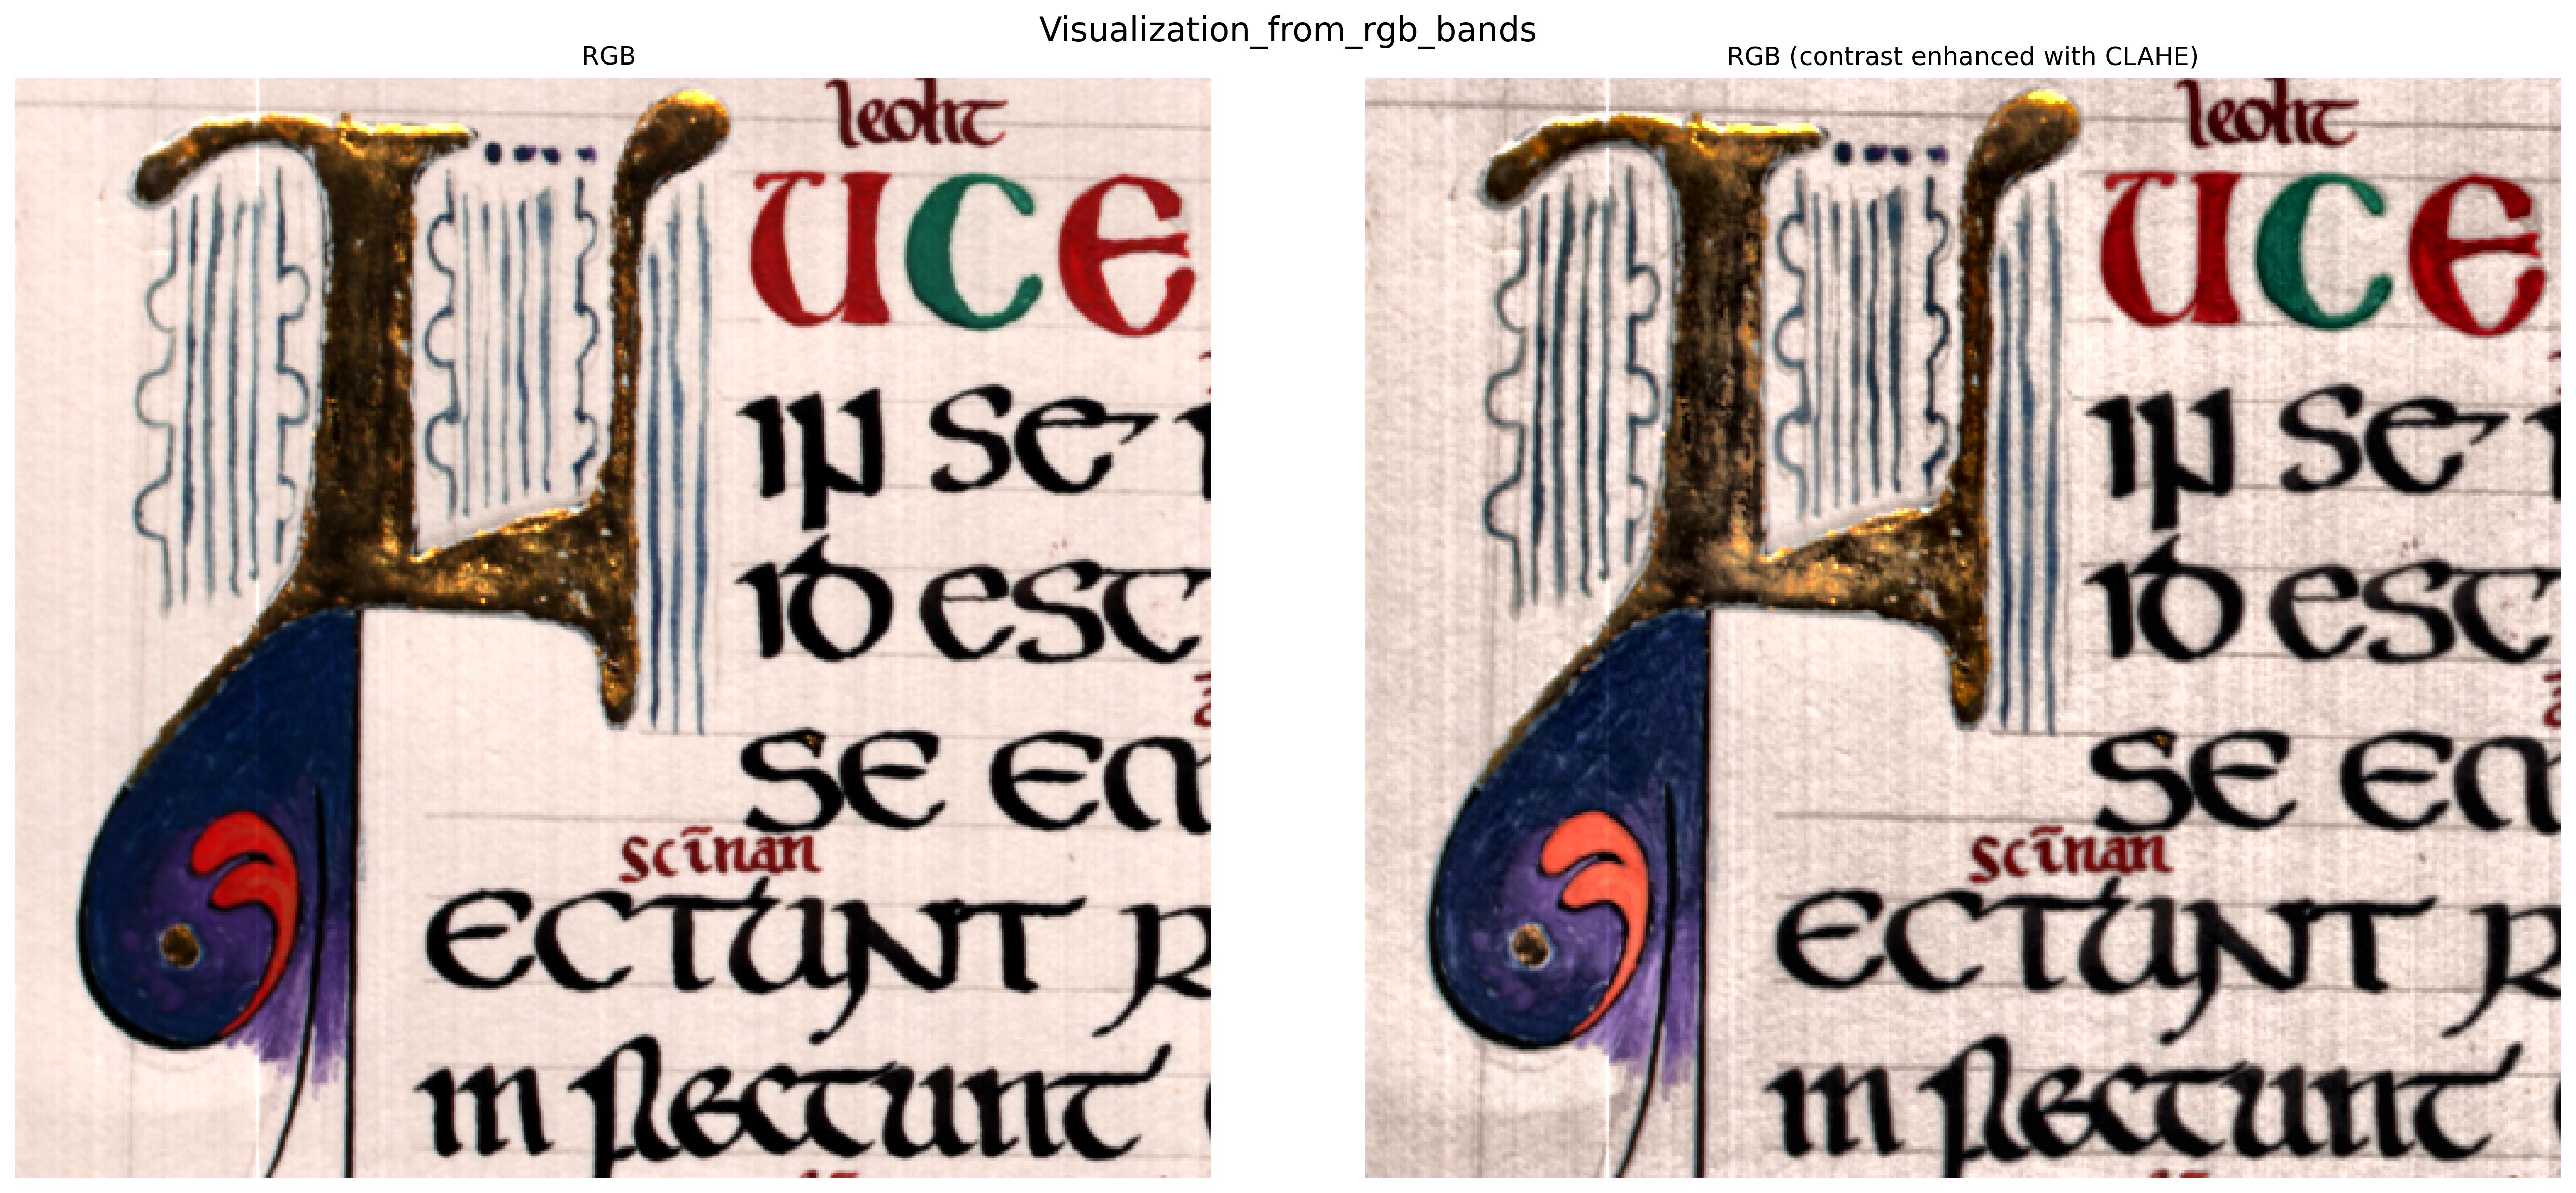 Visualization_from_rgb_bands
RGB
leoht
LUCE
IN SE
ID EST
SE EN
scīnan
ECTUNT R
in flectunt
RGB (contrast enhanced with CLAHE)
leoht
LUCE
IN SE
ID EST
SE EN
scīnan
ECTUNT R
in flectunt